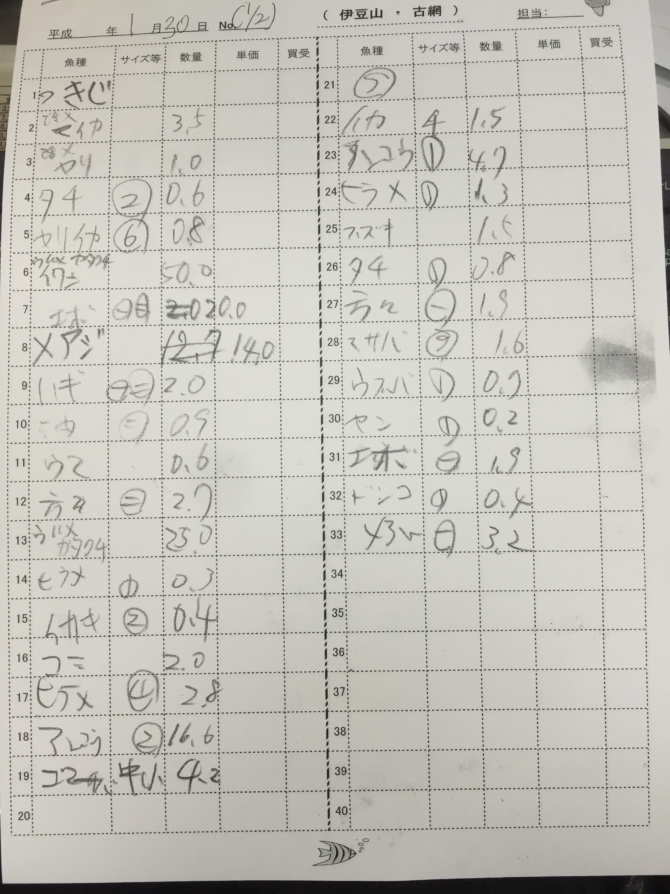 平成 年 1 月 30 日 No. (1/2) ( 伊豆山 ・ 古網 ) 担当:
魚種 サイズ等 数量 単価 買受
1 つきじ
2 3.5
3 1.0
4 タチ ② 0.6
5 ヤリイカ ⑥ 0.8
6 50.0
7 エボ 20.0
8 メアジ 12.7 14.0
9 ハギ 2.0
10 0.9
11 ウマ 0.6
12 方々 ㊁ 2.7
13 ウルメ カタクチ 25.0
14 ヒラメ ① 0.3
15 ② 0.4
16 コミ 2.0
17 ヒラメ ④ 2.8
18 アンコウ ② 16.6
19 中小 4.2
20
魚種 サイズ等 数量 単価 買受
21 ⑤
22 イカ 4 1.5
23 アンコウ ① 4.7
24 ヒラメ ① 1.3
25 スズキ 1.5
26 タチ ① 0.8
27 方々 ㊀ 1.9
28 マサバ ③ 1.6
29 ウスバ ① 0.7
30 ① 0.2
31 エボ ㊀ 1.9
32 ドンコ ① 0.4
33 ㊀ 3.2
34
35
36
37
38
39
40